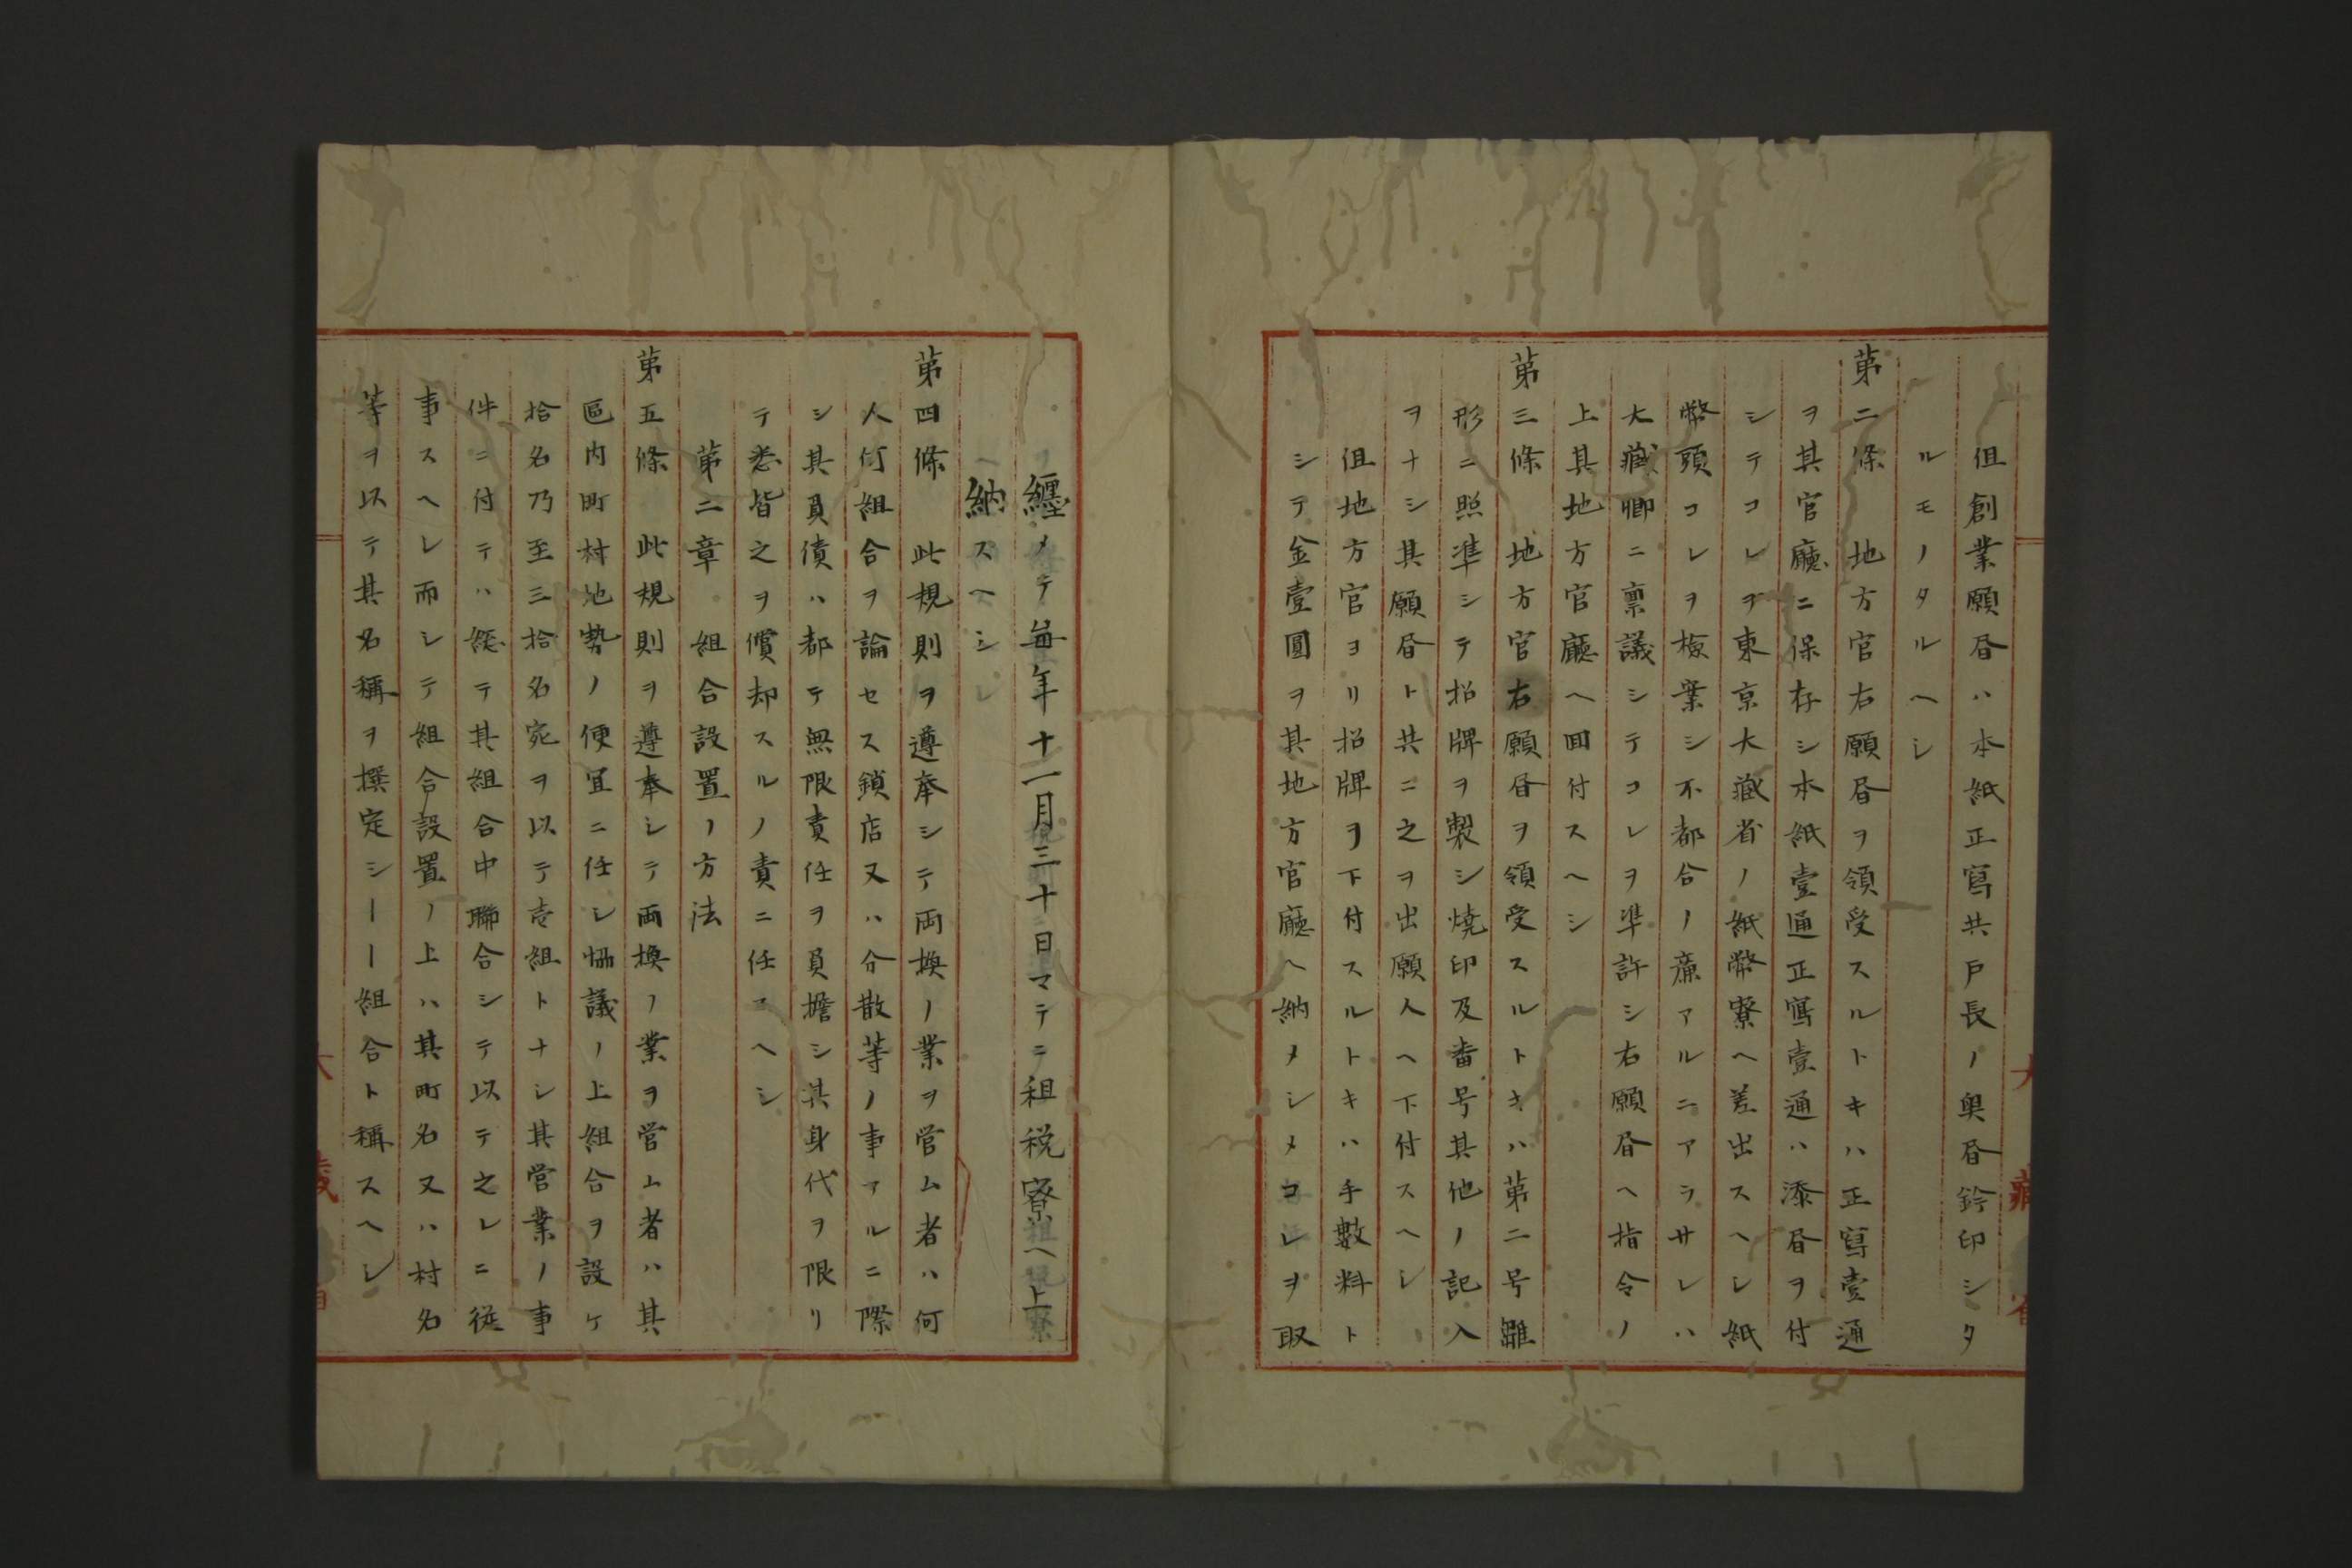 但創業願昏ハ本紙正寫共戸長ノ奥昏鈐印シタ
ルモノタルヘシ
第二條 地方官右願昏ヲ領受スルトキハ正寫壹通
ヲ其官廳ニ保存シ本紙壹通正寫壹通ハ添昏ヲ付
シテコレヲ東京大藏省ノ紙幣寮ヘ差出スヘシ紙
幣頭コレヲ檢案シ不都合ノ廉アルニアラサレハ
大藏卿ニ禀議シテコレヲ準許シ右願昏ヘ指令ノ
上其地方官廳ヘ回付スヘシ
第三條 地方官右願昏ヲ領受スルトキハ第二号雛
形ニ照準シテ招牌ヲ製シ焼印及番号其他ノ記入
ヲナシ其願昏ト共ニ之ヲ出願人ヘ下付スヘシ
但地方官ヨリ招牌ヲ下付スルトキハ手數料ト
シテ金壹圓ヲ其地方官廳ヘ納メシメコレヲ取
纒メテ毎年十一月三十日マテニ租税寮ヘ上
納スヘシ
第四條 此規則ヲ遵奉シテ両換ノ業ヲ営ム者ハ何
人何組合ヲ論セス鎖店又ハ分散等ノ事アルニ際
シ其負債ハ都テ無限責任ヲ負擔シ其身代ヲ限リ
テ悉皆之ヲ償却スルノ責ニ任スヘシ
第二章 組合設置ノ方法
第五條 此規則ヲ遵奉シテ両換ノ業ヲ営ム者ハ其
區内町村地勢ノ便宜ニ任シ恊議ノ上組合ヲ設ケ
拾名乃至三拾名宛ヲ以テ壱組トナシ其営業ノ事
件ニ付テハ總テ其組合中聯合シテ以テ之レニ従
事スヘシ而シテ組合設置ノ上ハ其町名又ハ村名
等ヲ以テ其名稱ヲ撰定シ｜｜組合ト稱スヘシ
大藏省